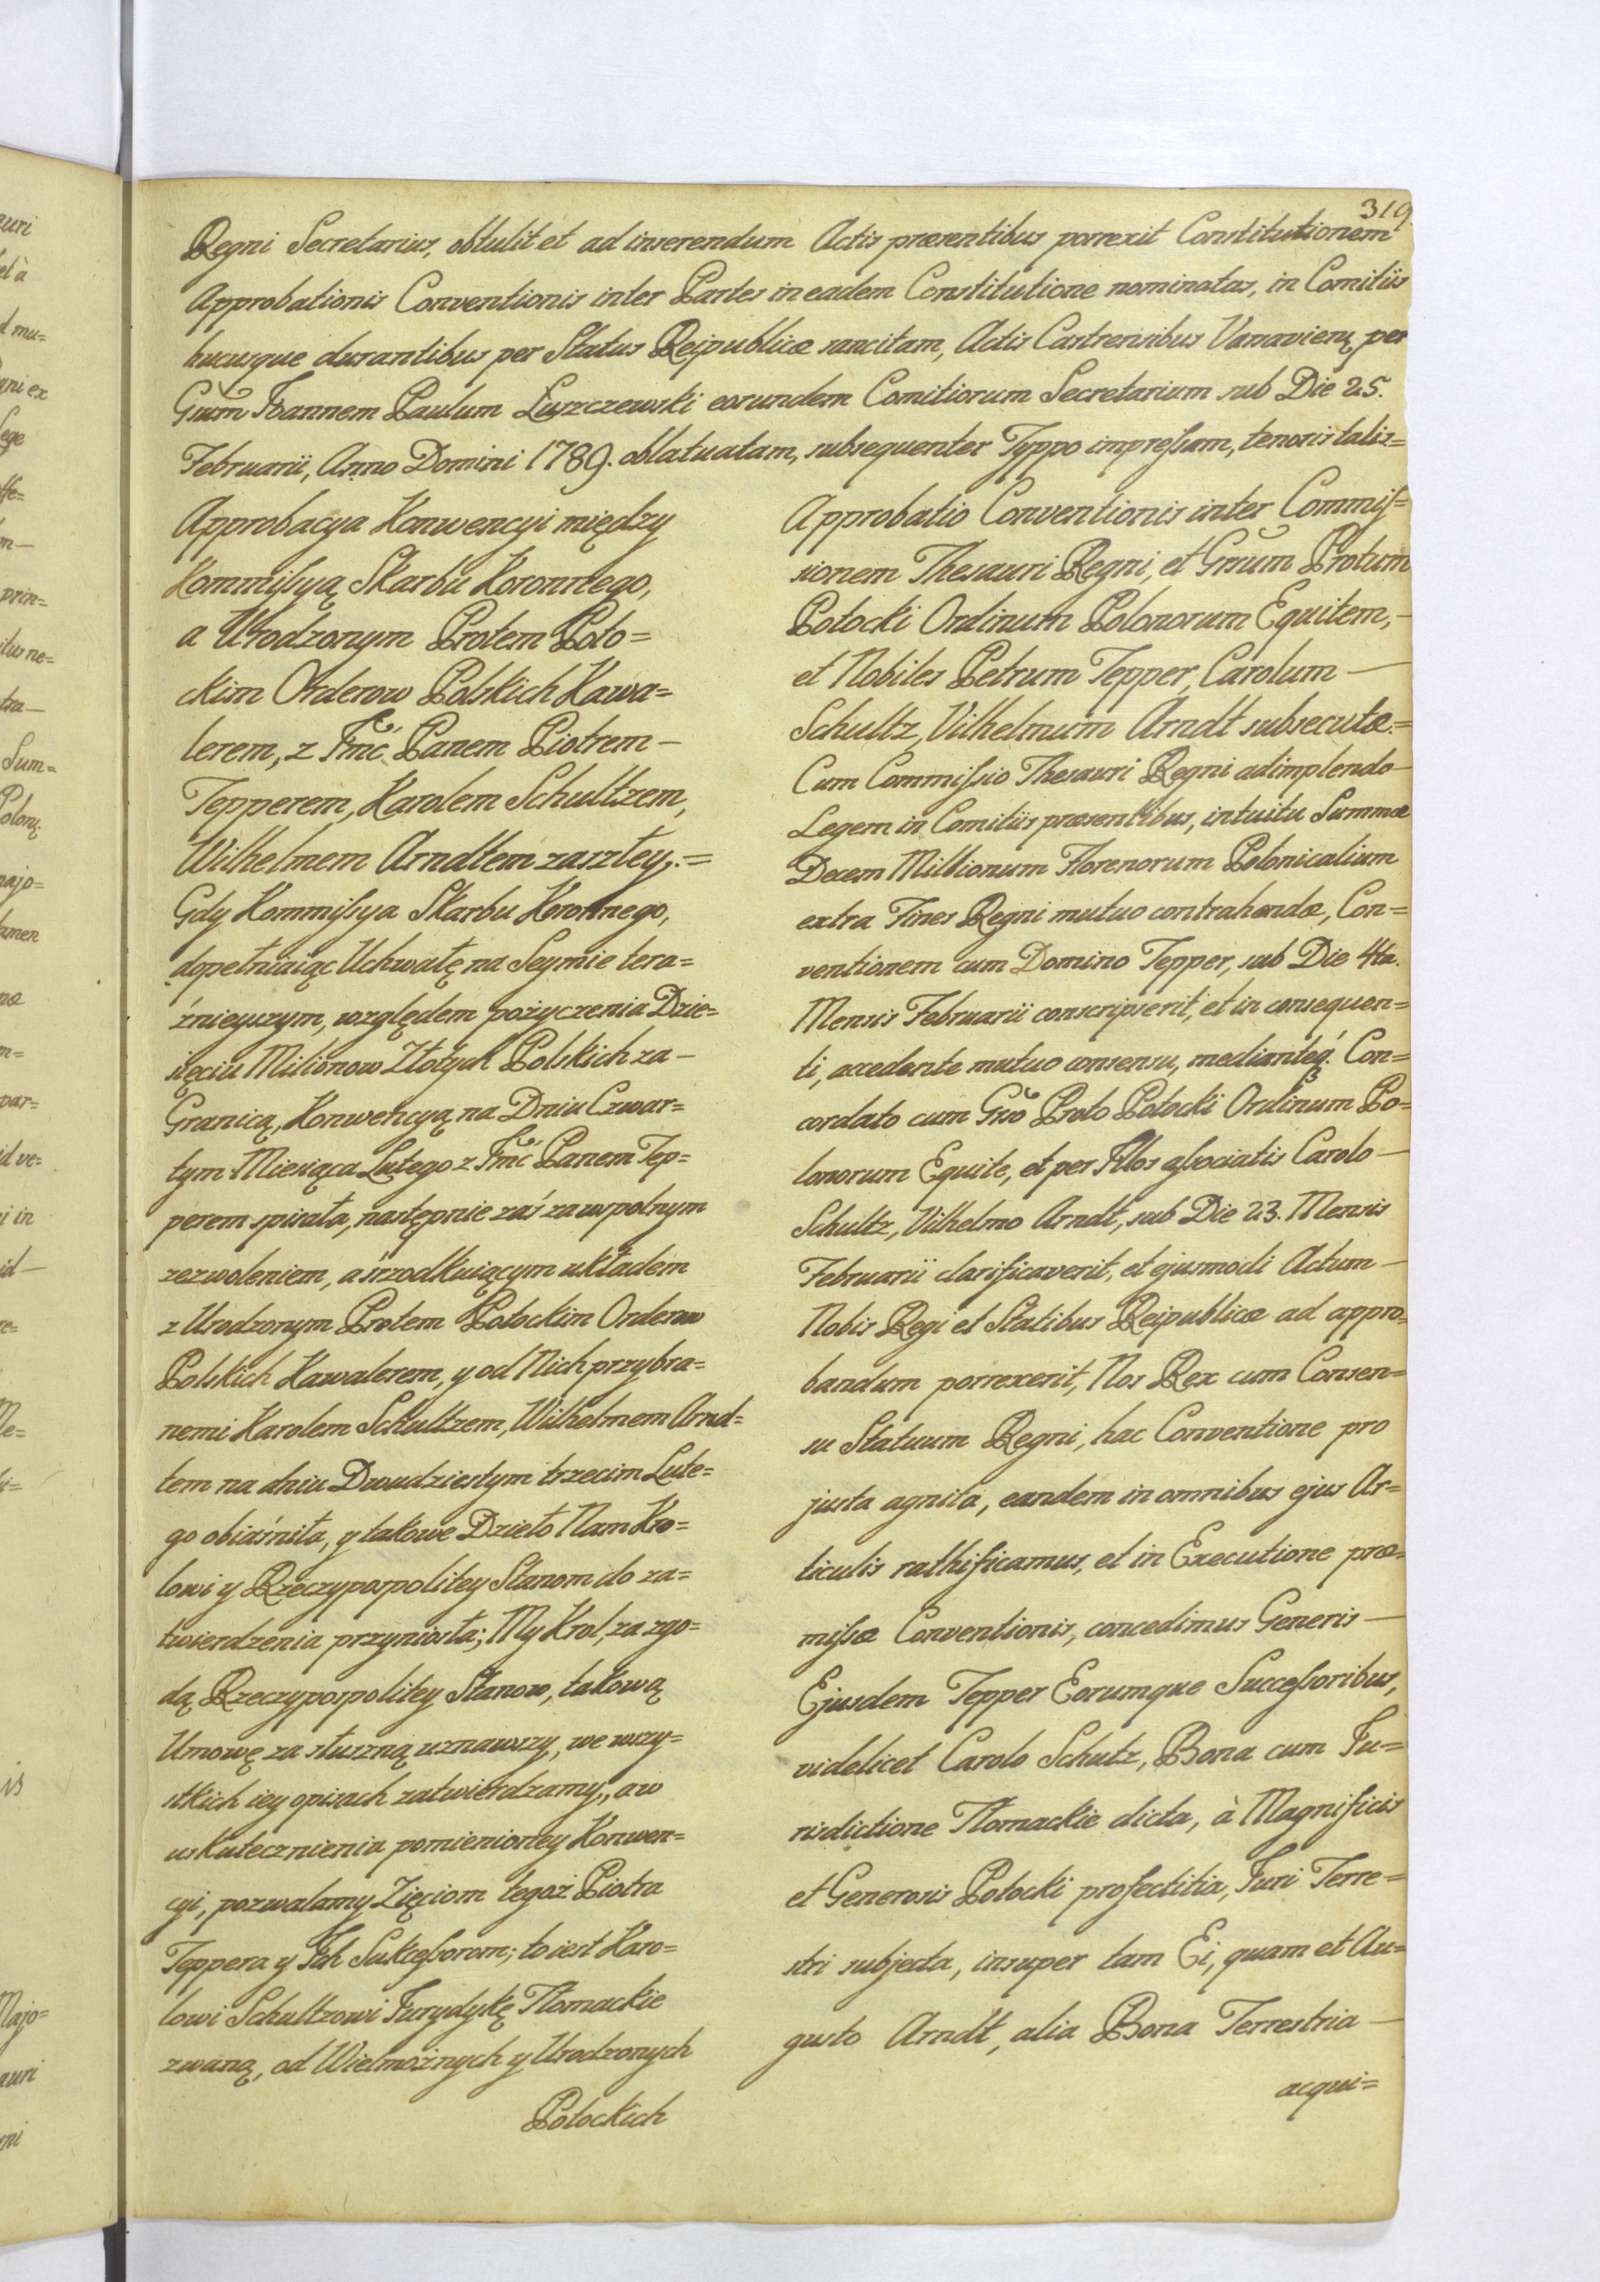 319.
Regni Secretarius, obtulit et ad inserendum Actis præsentibus porrexit Constitutionem
Approbationis Conventionis inter Partes in eadem Constitutione nominatas, in Comitiis
hucusque durantibus per Status Reipublicæ sancitam, Actis Castrensibus Varsavien, per
Gnum Joannem Paulum Łuszczewski eorundem Comitiorum Secretarium sub Die 25.
Februarii, Anno Domini 1789. oblatuatam, subsequenter Typpo impreſsam, tenoris talis=
Approbacya Konwencyi między
Kommiſsyą Skarbu Koronnego,
a Urodzonym Protem Poto=
ckim Orderow Polskich Kawa=
lerem, z Jmć Panem Piotrem —
Tepperem, Karolem Schultzem,
Wilhelmem Arndtem zaszłey.=
Gdy Kommiſsya Skarbu Koronnego,
dopełniaiąc Uchwałę na Seymie tera=
źnieyszym, względem pożyczenia Dzie=
sięciu Milionow Złotych Polskich za —
Granicą, Konwencyą na Dniu Czwar=
tym Miesiąca Lutego z Jmć Panem Tep=
perem spisała, następnie zaś za wspolnym
zezwoleniem, a srzodkuiącym układem
z Urodzonym Protem Potockim Orderow
Polskich Kawalerem, y od Nich przybra=
nemi Karolem Schultzem, Wilhelmem Arnd=
tem na dniu Dwudziestym trzecim Lute=
go obiaśniła, y takowe Dzieło Nam Kro=
lowi y Rzeczypospolitey Stanom do za=
twierdzenia przyniosła; My Krol, za zgo=
dą Rzeczypospolitey Stanow, takową
Umowę za słuszną uznawszy, we wszy=
stkich iey opisach zatwierdzamy, a w
uskutecznienia pomienioney Konwen=
cyi, pozwalamy Zięciom tegoż Piotra
Teppera y Jch Sukceſsorom; to iest Karo=
lowi Schultzowi Jurydykę Tłomackie
zwaną, od Wielmożnych y Urodzonych
Potockich
Approbatio Conventionis inter Commiſ=
sionem Thesauri Regni, et Gnum Protum
Potocki Ordinum Polonorum Equitem, —
et Nobiles Petrum Tepper, Carolum —
Schultz, Vilhelmum Arndt subsecutæ.=
Cum Commiſsio Thesauri Regni adimplendo —
Legem in Comitiis præsentibus, intuitu Summæ
Decem Millionum Florenorum Polonicalium
extra Fines Regni mutuo contrahendæ, Con=
ventionem cum Domino Tepper, sub Die 4ta.
Mensis Februarii conscripserit, et in consequen=
ti, accedente mutuo consensu, medianteq. Con=
cordato cum Gno Proto Potocki Ordinum Po=
lonorum Equite, et per Illos aſsociatis Carolo —
Schultz, Vilhelmo Arndt, sub Die 23. Mensis
Februarii clarificaverit, et ejusmodi Actum —
Nobis Regi et Statibus Reipublicæ ad appro=
bandum porrexerit, Nos Rex cum Consen=
su Statuum Regni, hac Conventione pro
justa agnita, eandem in omnibus ejus Ar=
ticulis rathificamus, et in Executione præ=
miſsæ Conventionis, concedimus Generis —
Ejusdem Tepper Eorumque Succeſsoribus,
videlicet Carolo Schutz, Bona cum Ju=
risdictione Tłomackie dicta, à Magnificis
et Generosis Potocki profectitia, Juri Terre=
stri subjecta, insuper tam Ei, quam et Au=
gusto Arndt, alia Bona Terrestria —
acqui=